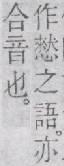 作憖之語。亦
合音也。